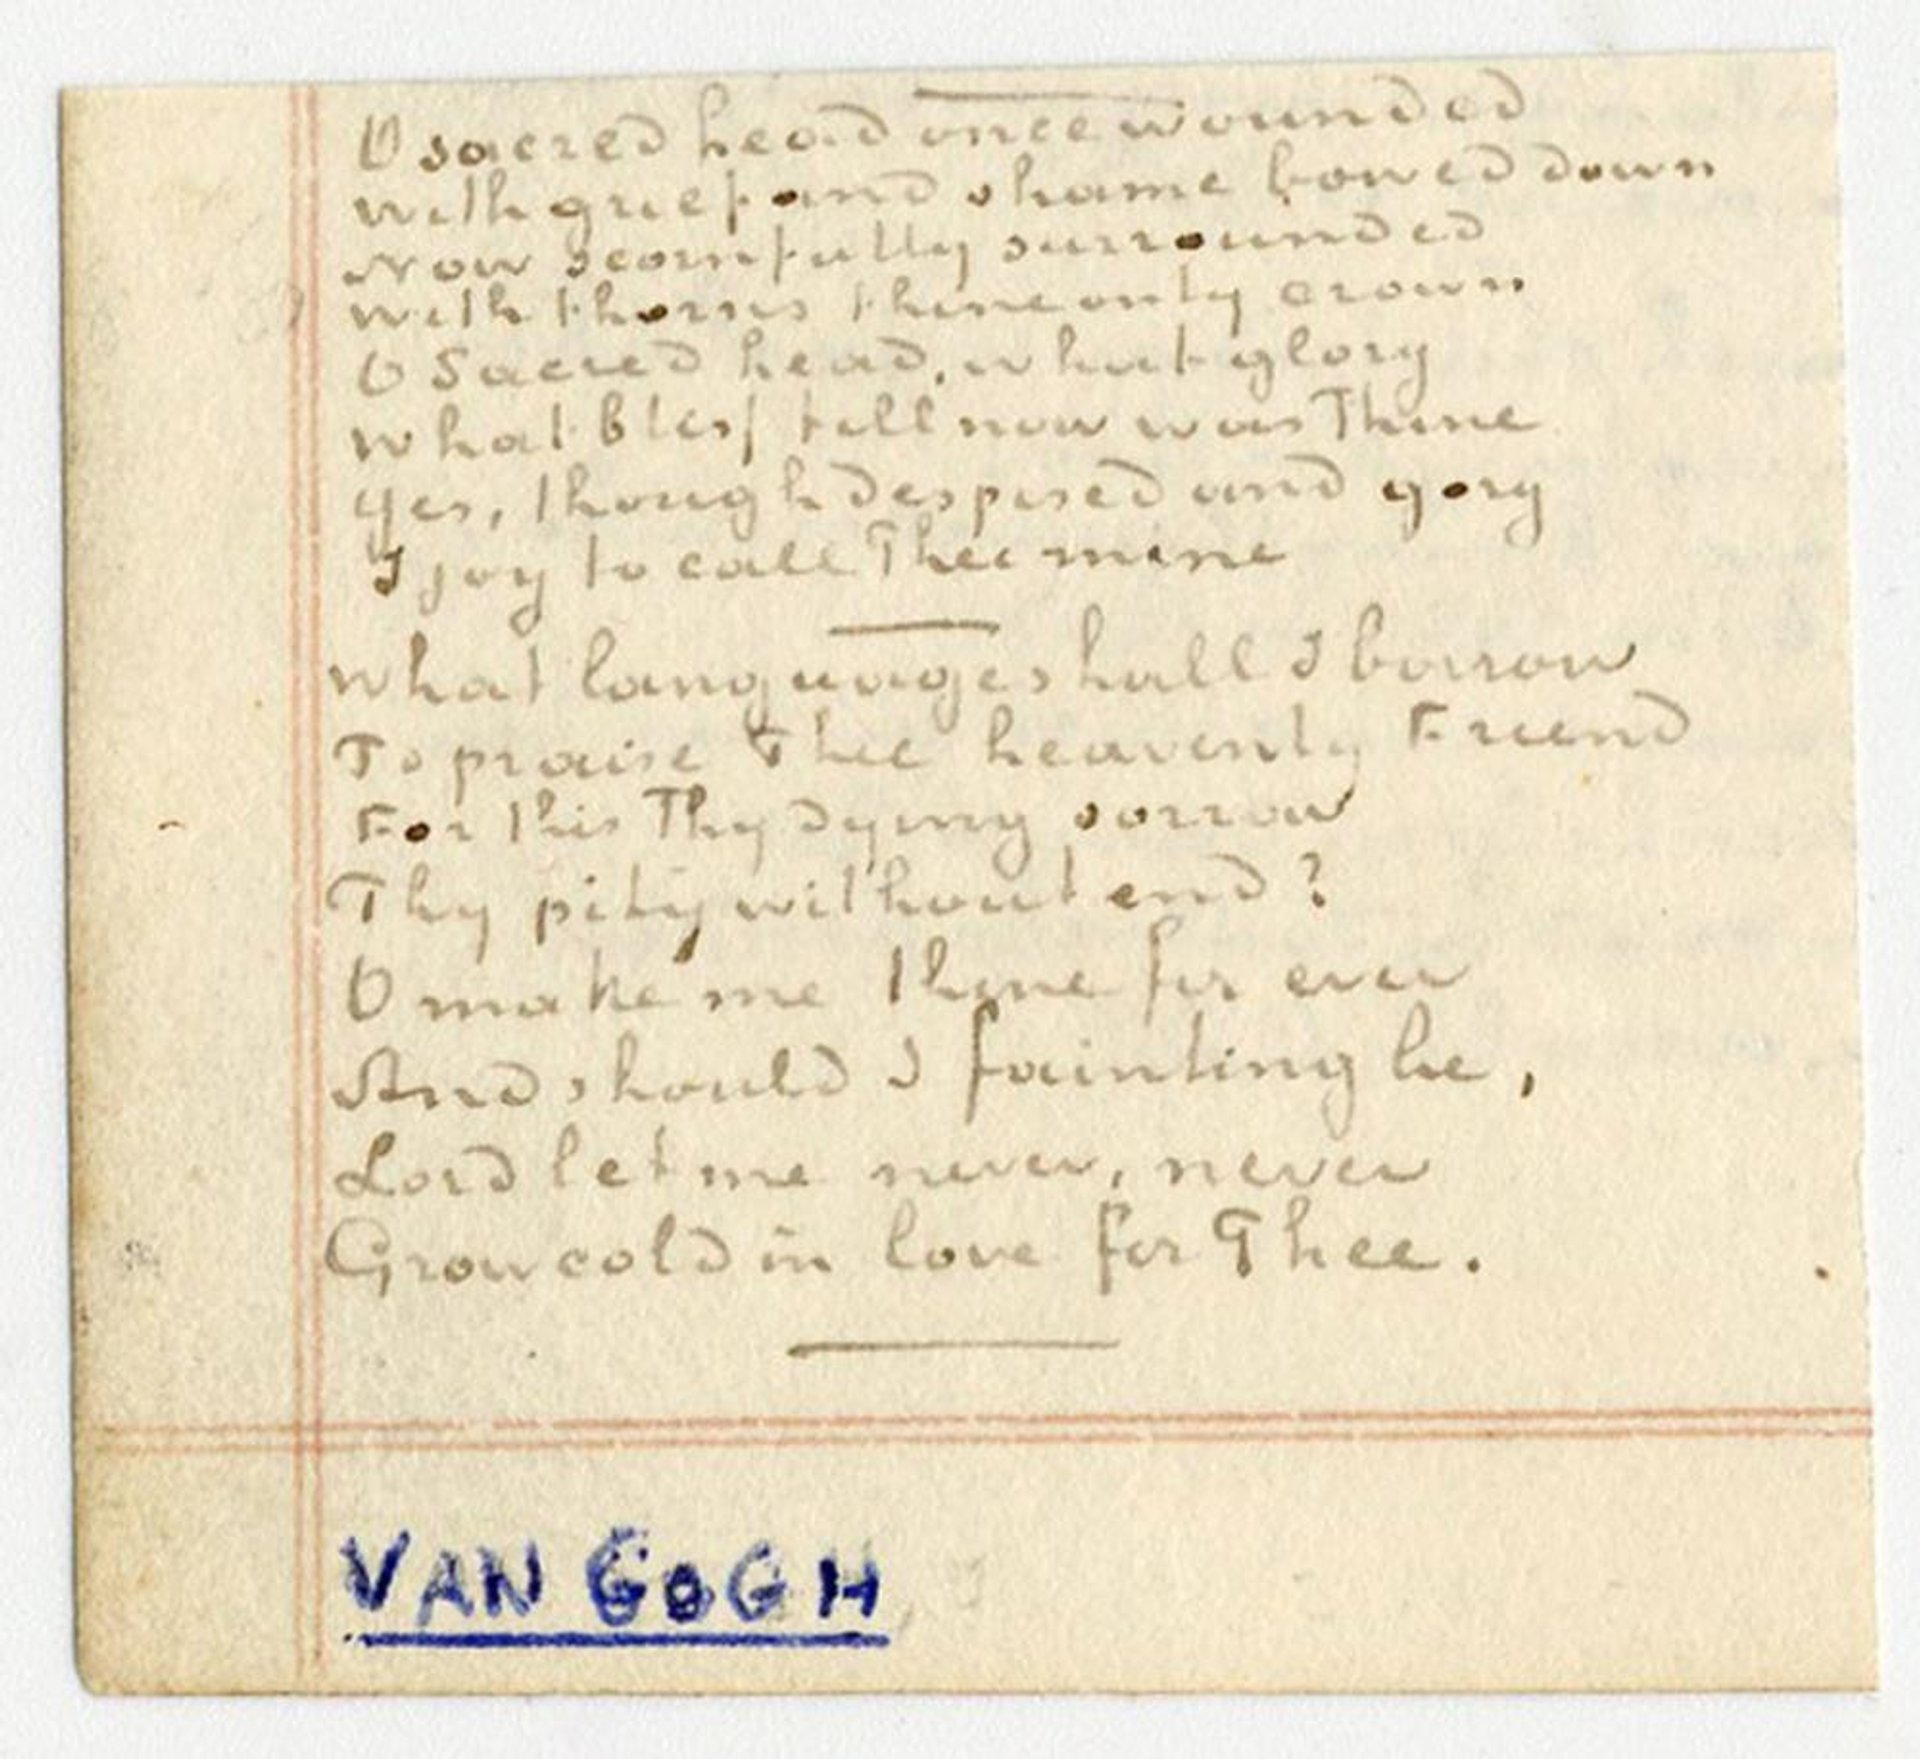 O sacred head once wounded
With grief and shame bowed down
Now scornfully surrounded
With thorns thine only crown
O Sacred head, what glory
What bless till now was Thine
Yes, though despised and gory
I joy to call Thee mine
What language shall I borrow
To praise Thee heavenly Friend
For this Thy dying sorrow
Thy pity without end?
O make me Thine for ever
And should I fainting be,
Lord let me never, never
Grow cold in love for Thee.
VAN GOGH